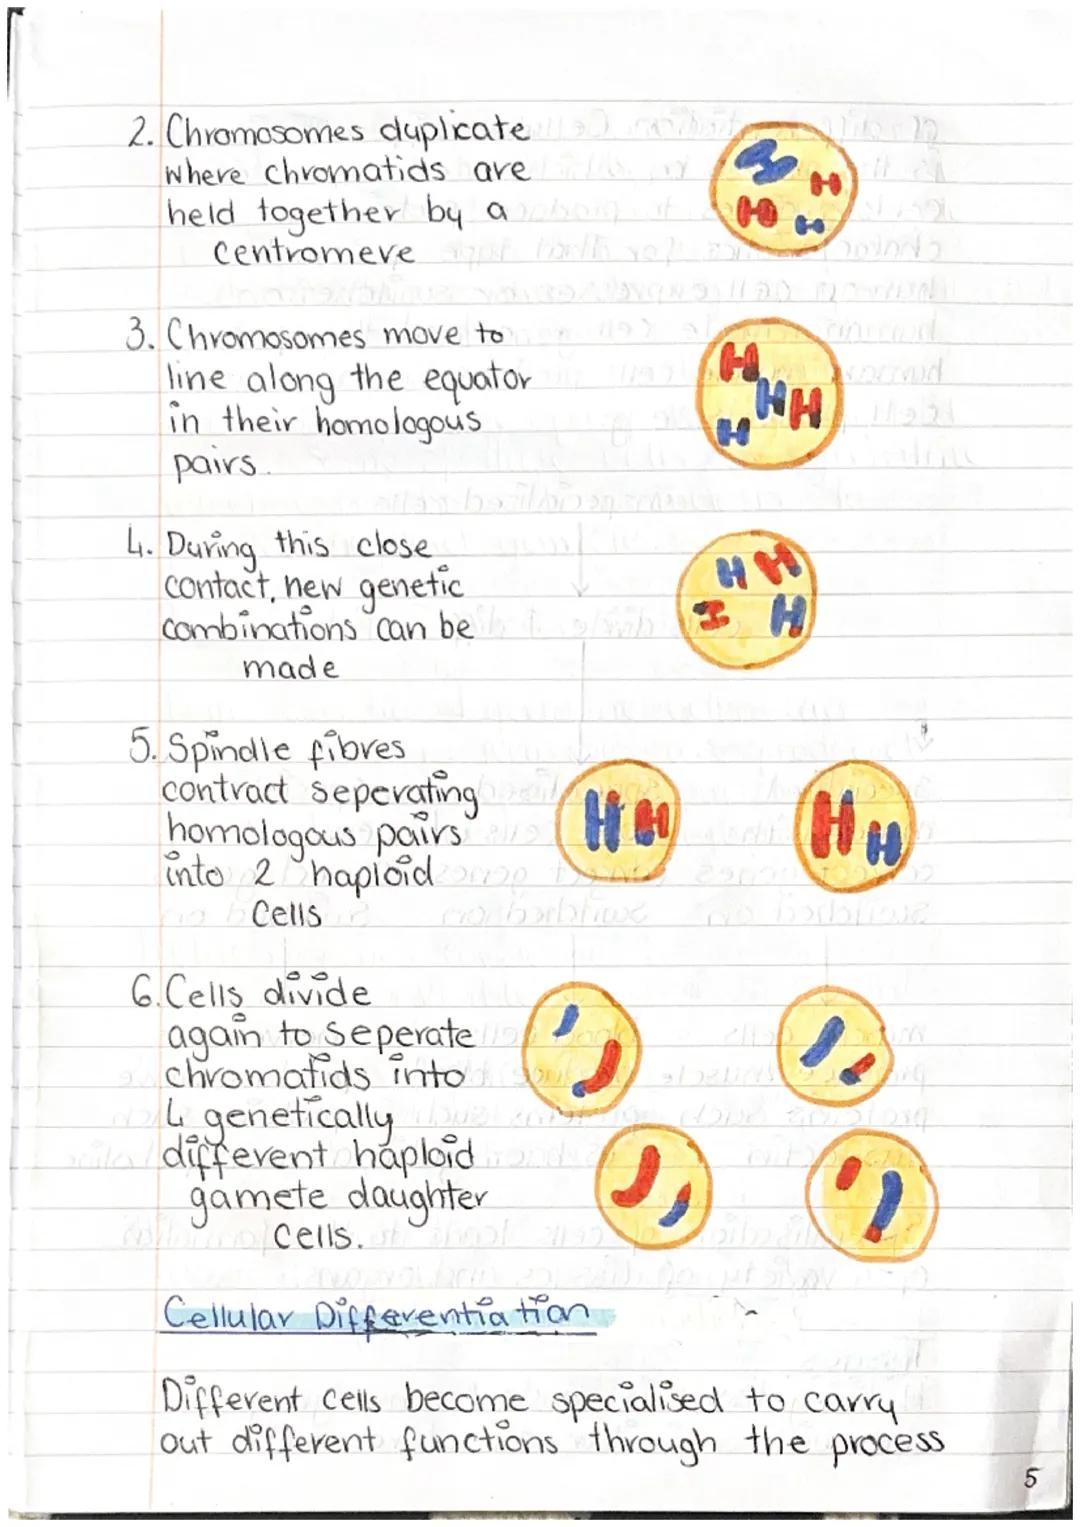 2. Chromosomes duplicate
where chromatids are
held together by a
centromere
3. Chromosomes move to
line along the equator
in their homologous
pairs.
4. During this close
contact, new genetic
combinations can be
made
5. Spindle fibres
contract seperating
homologous pairs
into 2 haploid
cells
6. Cells divide
again to seperate
chromatids into
4 genetically
different haploid
gamete daughter
cells.
Cellular Differentiation
Different cells become specialised to carry
out different functions through the process
5